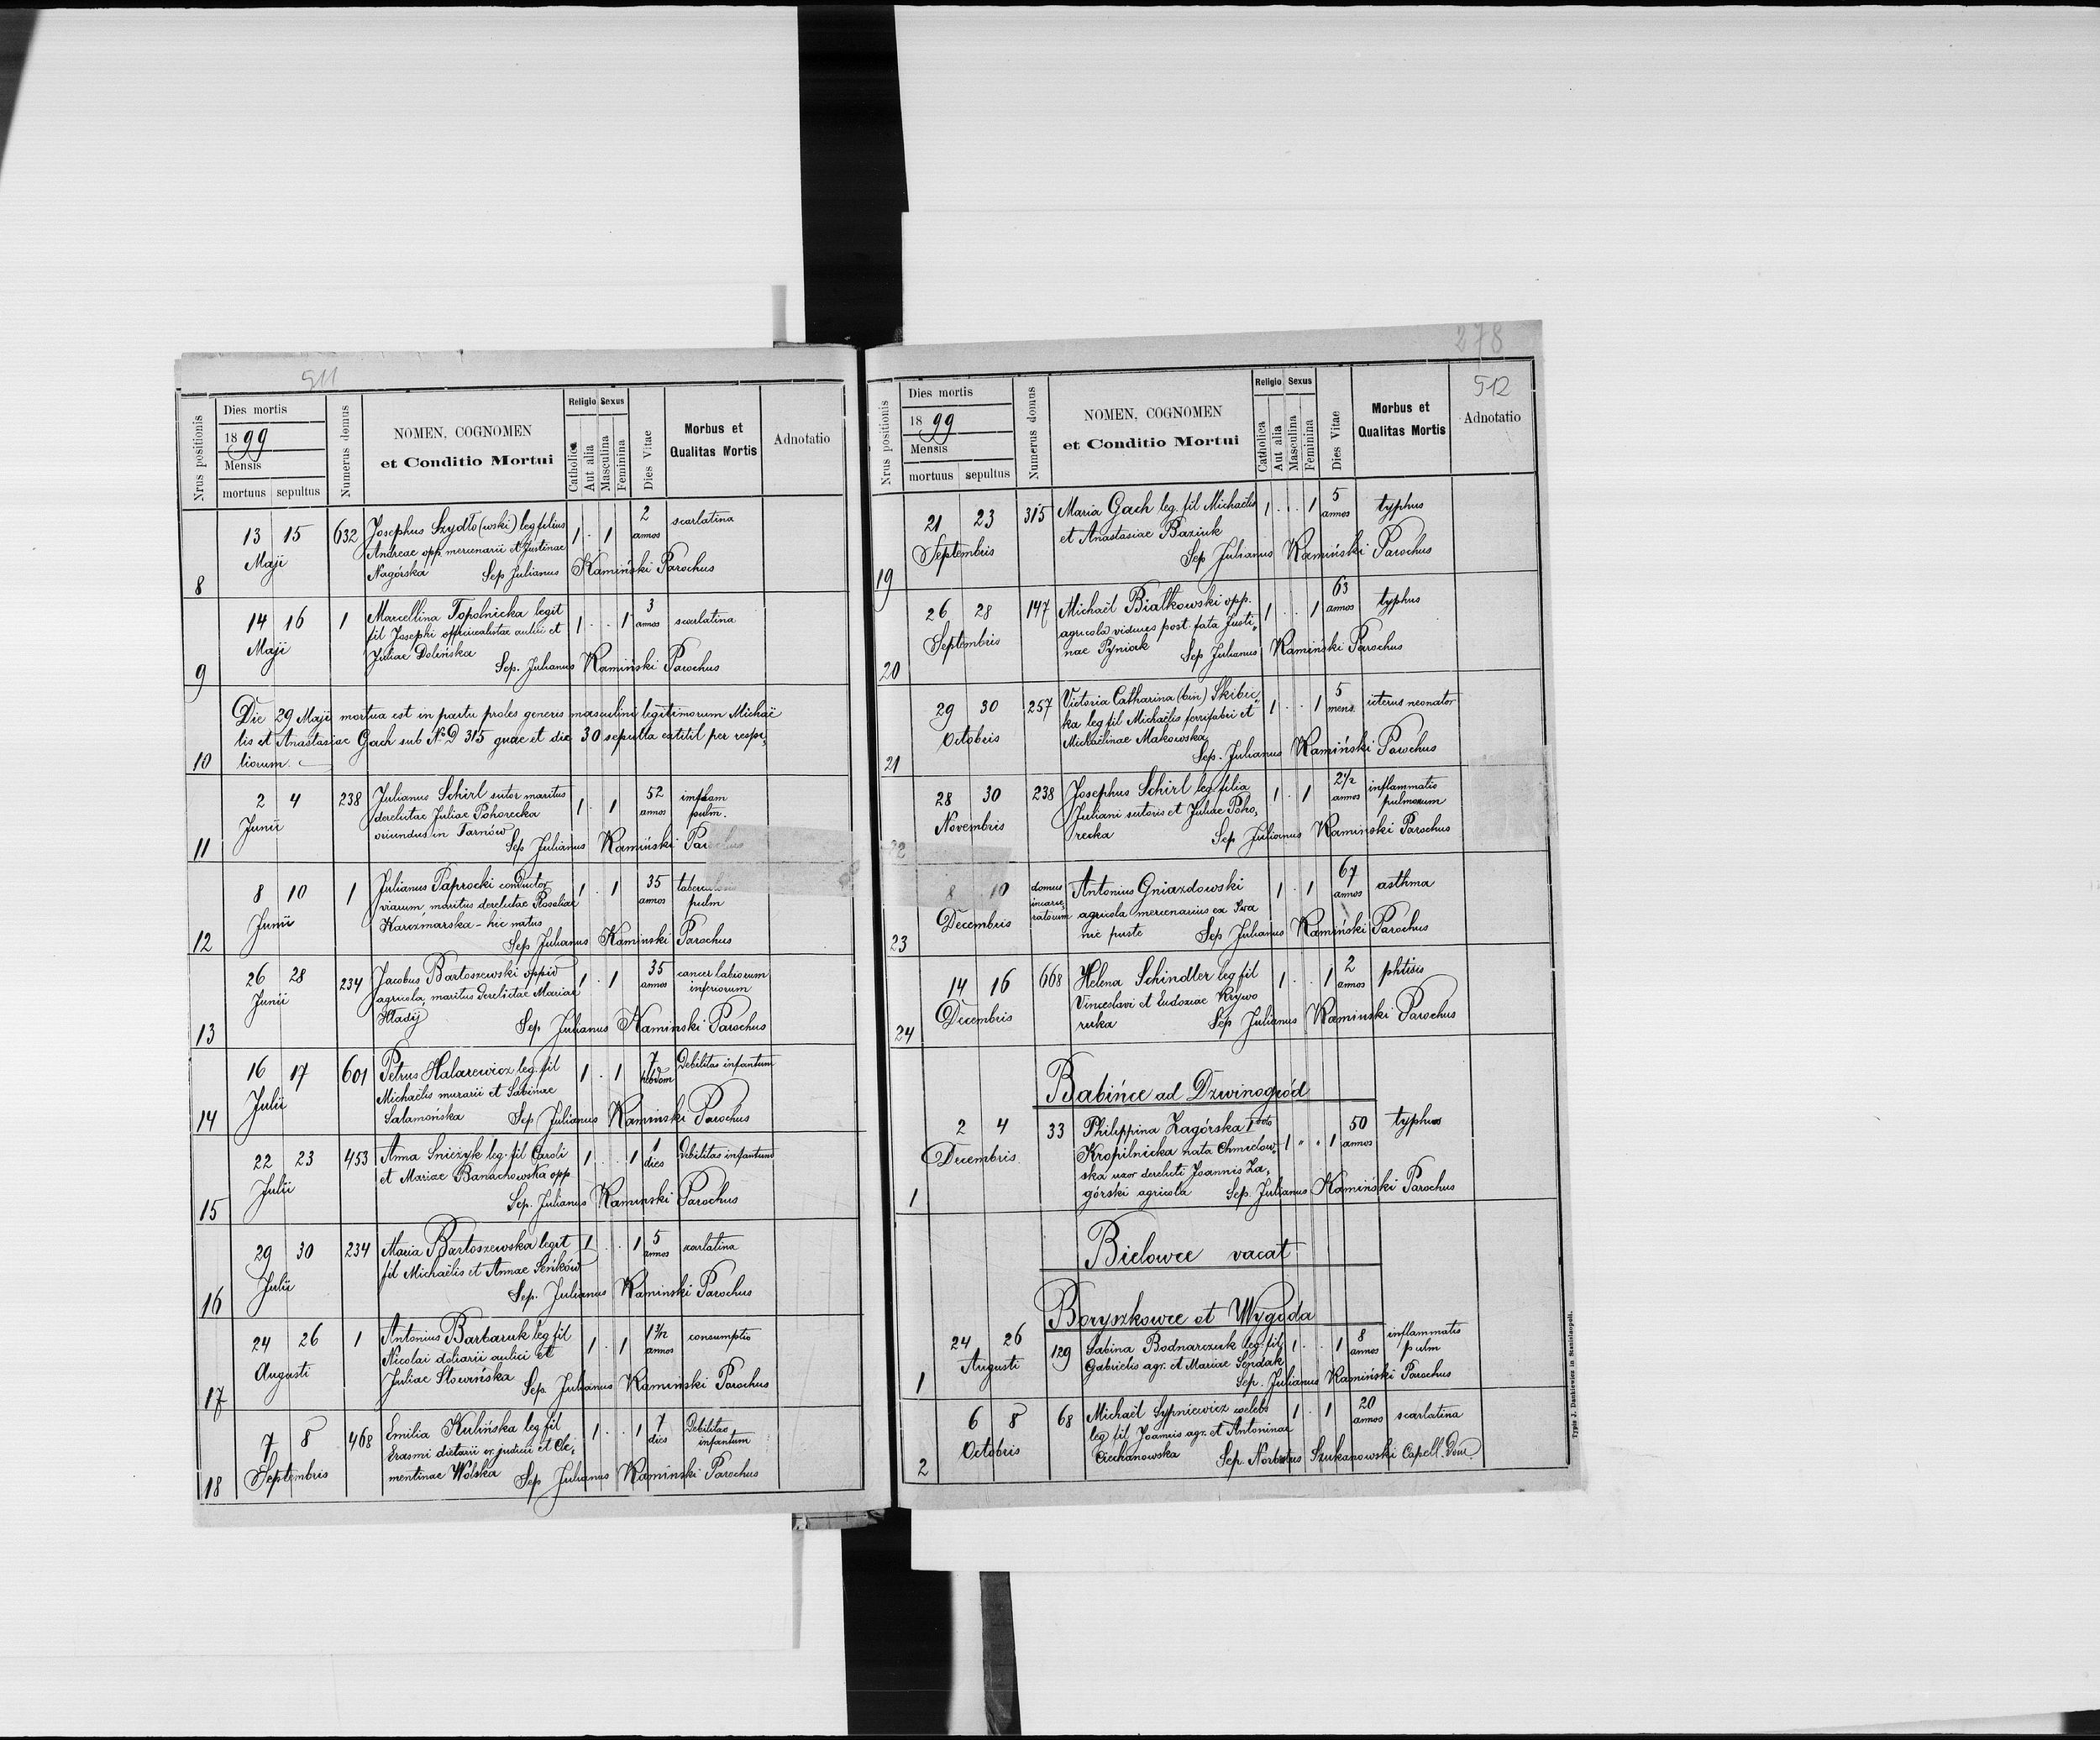 511
Nrus positionis
Dies mortis
1899
Mensis
mortuus sepultus
Numerus domus
NOMEN, COGNOMEN
et Conditio Mortui
Religio Sexus
Catholica
Aut alia
Masculina
Feminina
Dies Vitae
Morbus et
Qualitas Mortis
Adnotatio
8 13 15 632 Josephus Szydło (wski) leg filius 1 . 1 2 scarlatina
Maji Andreae opp. mercenarii et Justinae annos
Nagórska Sep Julianus Kamiński Parochus
9 14 16 1 Marcellina Topolnicka legit 1 . . 1 3 scarlatina
Maji fil Josephi officialistae aulici et annos
Juliae Dolińska
Sep. Julianus Kamiński Parochus
Die 29 Maji mortua est in partu proles generis masculini legitimorum Michaë
lis et Anastasiae Gach sub N D 315 quae et die 30 sepulta
10 liorum.
11 2 4 238 Julianus Schirl sutor maritus 1 . 1 52
Junii derelictae Juliae Pohorecka annos pulm.
oriundus in Tarnów
Sep Julianus Kamiński Parochus
12 8 10 1 Julianus Paprocki conductor 1 . 1 35
Junii viarum, maritus derelictae Rosaliae annos pulm
Karczmarska - hic natus
Sep Julianus Kamiński Parochus
13 26 28 234 Jacobus Bartoszewski oppid 1 . 1 35 cancer labiorum
Junii agricola, maritus derelictae Mariae annos inferiorum
Hladij Sep Julianus Kamiński Parochus
14 16 17 601 Petrus Halarewicz leg. fil 1 . 1 7 Debilitas infantum
Julii Michaëlis murarii et Sabinae hebdom
Salamońska Sep Julianus Kamiński Parochus
15 22 23 453 Anna Śnieżyk leg. fil Caroli 1 . . 1 1 Debilitas infantum
Julii et Mariae Banachowska opp dies
Sep. Julianus Kamiński Parochus
16 29 30 234 Maria Bartoszewska legit 1 . . 1 5 scarlatina
Julii fil Michaëlis et Annae Seńków annos
Sep. Julianus Kamiński Parochus
17 24 26 1 Antonius Barbaruk leg fil 1 . 1 consumptio
Augusti Nicolai doliarii aulici et annos
Juliae Słowińska Sep. Julianus Kamiński Parochus
18 7 8 468 Emilia Kulińska leg fil 1 . . 1 7 Debilitas
Septembris Erasmi dietarii judicii et Cle, dies infantum
mentinae Wolska Sep Julianus Kamiński Parochus
278
512
Nrus positionis
Dies mortis
1899
Mensis
mortuus sepultus
Numerus domus
NOMEN, COGNOMEN
et Conditio Mortui
Religio Sexus
Catholica
Aut alia
Masculina
Feminina
Dies Vitae
Morbus et
Qualitas Mortis
Adnotatio
19 21 23 315 Maria Gach leg. fil Michaëlis 1 . . 1 5 typhus
Septembris et Anastasiae Baziuk annos
Sep Julianus Kamiński Parochus
20 26 28 147 Michaël Białkowski opp. 1 . . 1 63 typhus
Septembris agricola viduus post fata Justi„ annos
nae Pyniak Sep Julianus Kamiński Parochus
21 29 30 257 Victoria Catharina (bin) Skibic„ 1 . . 1 5 icterus neonator
Octobris ka leg fil Michaëlis ferrifabri et mens.
Michaëlinae Makowska
Sep. Julianus Kamiński Parochus
22 28 30 238 Josephus Schirl leg filia 1 . 1 2 1/2 inflammatio
Novembris Juliani sutoris et Juliae Poho, annos pulmonum
recka Sep Julianus Kamiński Parochus
23 8 10 domus Antonius Gniazdowski 1 . 1 67 asthma
Decembris agricola mercenarius ex Iwa annos
nie puste Sep Julianus Kamiński Parochus
24 14 16 668 Helena Schindler leg fil 1 . . 1 2 phtisis
Decembris Vinceslavi et Eudoxiae Krywo annos
rucka Sep Julianus Kamiński Parochus
Babińce ad Dzwinogród
1 2 4 33 Philippina Zagórska 1 voto 50 typhus
Decembris Kropilnicka nata Chmielow„ 1 " . 1 annos
ska uxor derelicti Joannis Za,
górski agricola Sep. Julianus Kamiński Parochus
Bielowce vacat
Boryszkowce et Wygoda
1 24 26 129 Sabina Bodnarczuk leg. fil 1 . . 1 8 inflammatio
Augusti Gabrielis agr. et Mariae Sendak annos pulm
Sep. Julianus Kamiński Parochus
2 6 8 68 Michaël Sypniewicz coelebs 1 . 1 20 scarlatina
Octobris leg fil Joannis agr. et Antoninae annos
Ciechanowska Sep. Norbertus Szukanowski Capell. Dom
Typis J. Dankiewicz in Stanislaopoli.